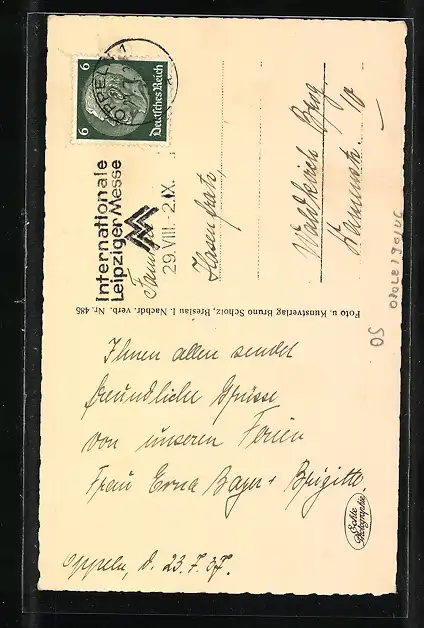 Ihnen allen sendet
freundliche Grüsse
von unseren Ferien
Frau Erna Bayer + Brigitte.
Oppeln, d. 23.7.37.
Echte
Photographie
Foto u. Kunstverlag Bruno Scholz, Breslau 1. Nachdr. verb. Nr. 485
Internationale
Leipziger Messe
29.VIII.-2.IX.
OPPELN
6 6
Deutsches Reich
Familie
Hasenfratz
Waldkirch Brsg.
50